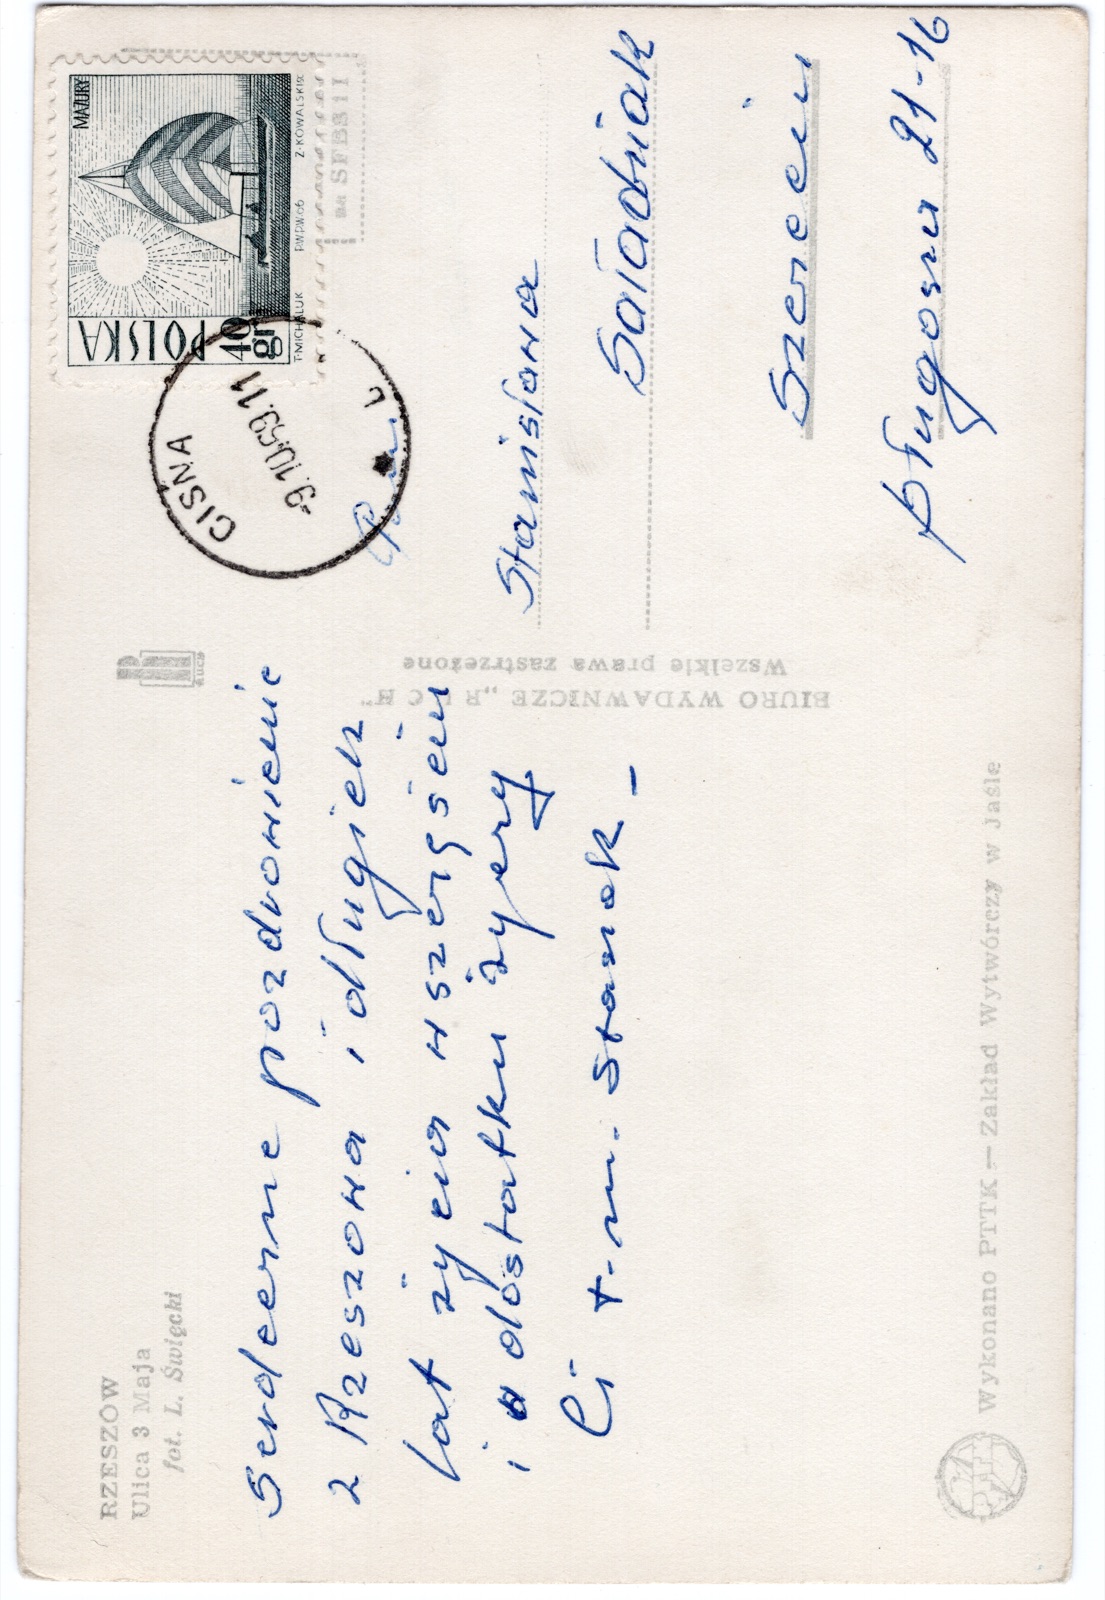 RZESZÓW
Ulica 3 Maja
fot. L. Święcki
RUCH
Serdeczne pozdrowienie
z Rzeszowa i długich
lat życia w szczęściu
i dostatku życzy
Ci t. m. Staszek –
Wykonano PTTK — Zakład Wytwórczy w Jaśle
BIURO WYDAWNICZE „RUCH"
Wszelkie prawa zastrzeżone
MAZURY
POLSKA
40 gr
T. MICHALUK P.W.P.W. 66 Z. KOWALSKI R.
na SFBSiI
CISNA
-9.10.69.11
Stanisława
Sałabniak
Szczecin
Długosza 21-16